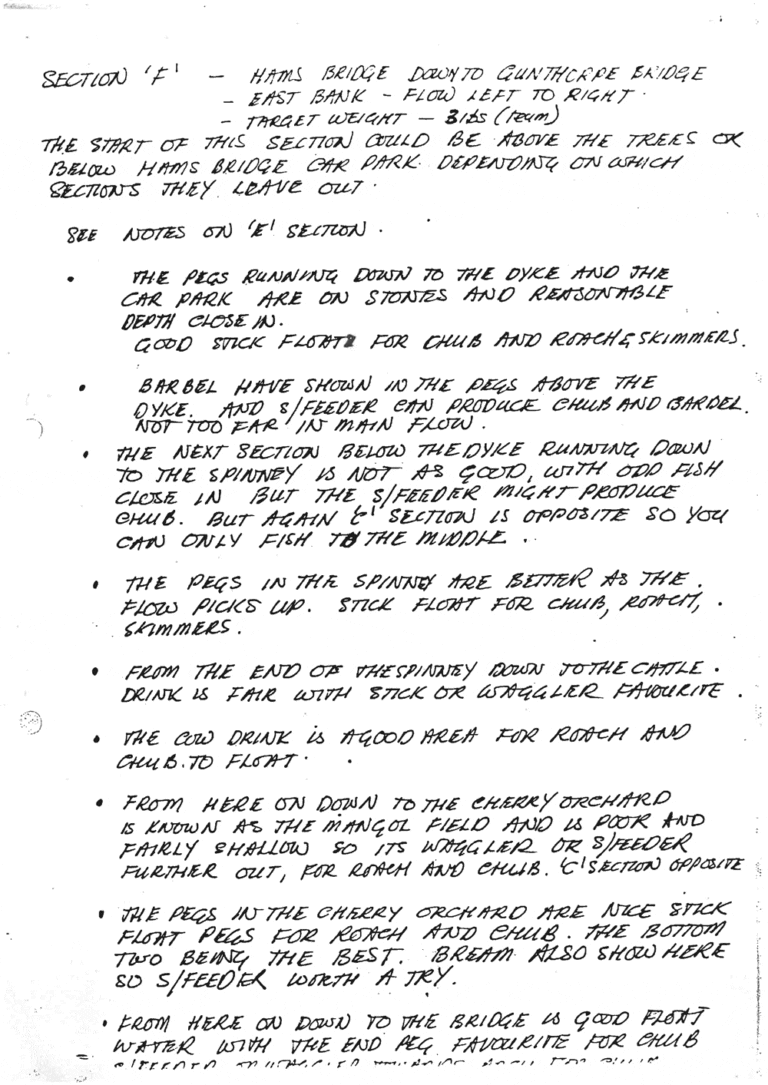 SECTION 'F' - HAMS BRIDGE DOWN TO GUNTHORPE BRIDGE
- EAST BANK - FLOW LEFT TO RIGHT.
- TARGET WEIGHT - 3lbs (team)
THE START OF THIS SECTION COULD BE ABOVE THE TREES OR
BELOW HAMS BRIDGE CAR PARK. DEPENDING ON WHICH
SECTIONS THEY LEAVE OUT.
SEE NOTES ON 'E' SECTION.
• THE PEGS RUNNING DOWN TO THE DYKE AND THE
CAR PARK ARE ON STONES AND REASONABLE
DEPTH CLOSE IN.
GOOD STICK FLOAT FOR CHUB AND ROACH & SKIMMERS.
• BARBEL HAVE SHOWN IN THE PEGS ABOVE THE
DYKE. AND S/FEEDER CAN PRODUCE CHUB AND BARBEL.
NOT TOO FAR IN MAIN FLOW.
• THE NEXT SECTION BELOW THE DYKE RUNNING DOWN
TO THE SPINNEY IS NOT AS GOOD, WITH ODD FISH
CLOSE IN BUT THE S/FEEDER MIGHT PRODUCE
CHUB. BUT AGAIN 'C' SECTION IS OPPOSITE SO YOU
CAN ONLY FISH TO THE MIDDLE.
• THE PEGS IN THE SPINNEY ARE BETTER AS THE
FLOW PICKS UP. STICK FLOAT FOR CHUB, ROACH,
SKIMMERS.
• FROM THE END OF THE SPINNEY DOWN TO THE CATTLE
DRINK IS FAIR WITH STICK OR WAGGLER FAVOURITE.
• THE COW DRINK IS A GOOD AREA FOR ROACH AND
CHUB. TO FLOAT.
• FROM HERE ON DOWN TO THE CHERRY ORCHARD
IS KNOWN AS THE MANGOL FIELD AND IS POOR AND
FAIRLY SHALLOW SO ITS WAGGLER OR S/FEEDER
FURTHER OUT, FOR ROACH AND CHUB. 'C' SECTION OPPOSITE
• THE PEGS IN THE CHERRY ORCHARD ARE NICE STICK
FLOAT PEGS FOR ROACH AND CHUB. THE BOTTOM
TWO BEING THE BEST. BREAM ALSO SHOW HERE
SO S/FEEDER WORTH A TRY.
• FROM HERE ON DOWN TO THE BRIDGE IS GOOD FLOAT
WATER WITH THE END PEG FAVOURITE FOR CHUB